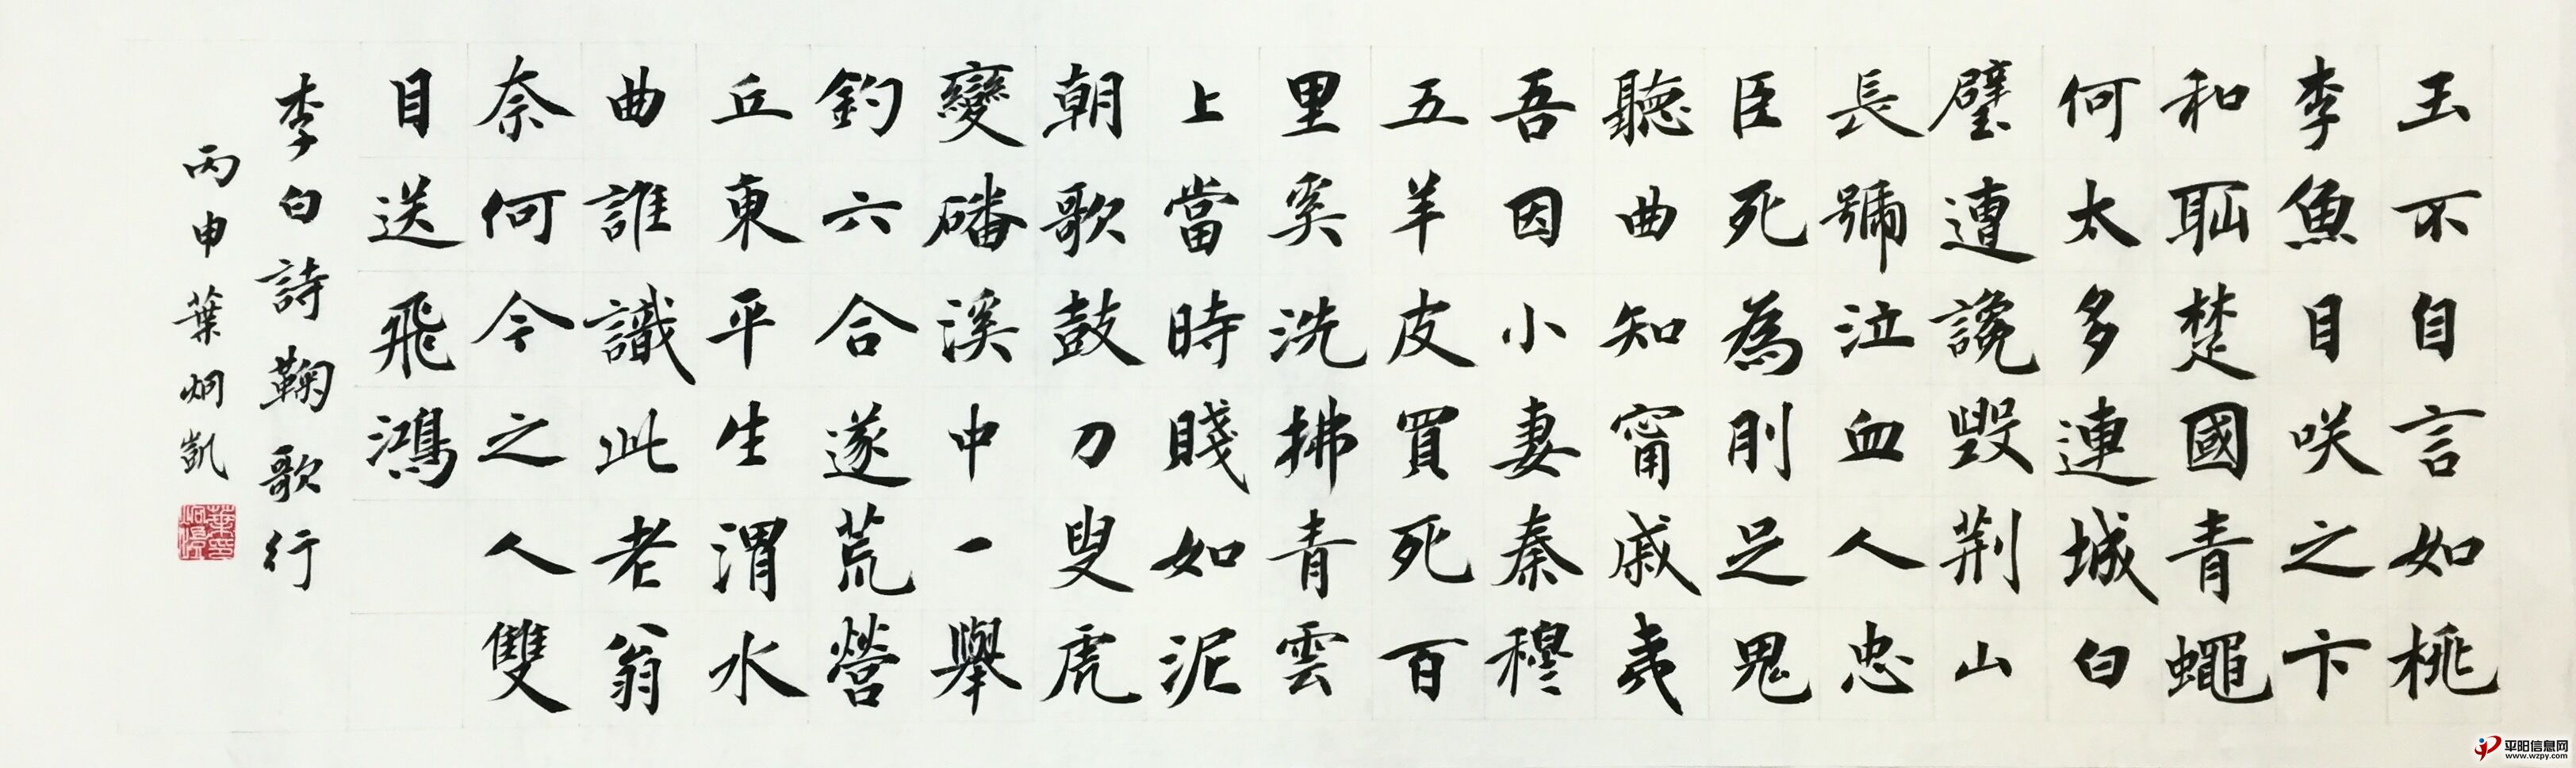 玉不自言如桃
李魚目咲之卞
和耻楚國青蠅
何太多連城白
璧遭讒毀荆山
長號泣血人忠
臣死為刖足鬼
聽曲知甯戚夷
吾因小妻秦穆
五羊皮買死百
里奚洗拂青雲
上當時賤如泥
朝歌鼓刀叟虎
變磻溪中一舉
釣六合遂荒營
丘東平生渭水
曲誰識此老翁
奈何今之人雙
目送飛鴻
李白詩鞠歌行
丙申葉炯凱
平阳信息网
www.wzpy.com